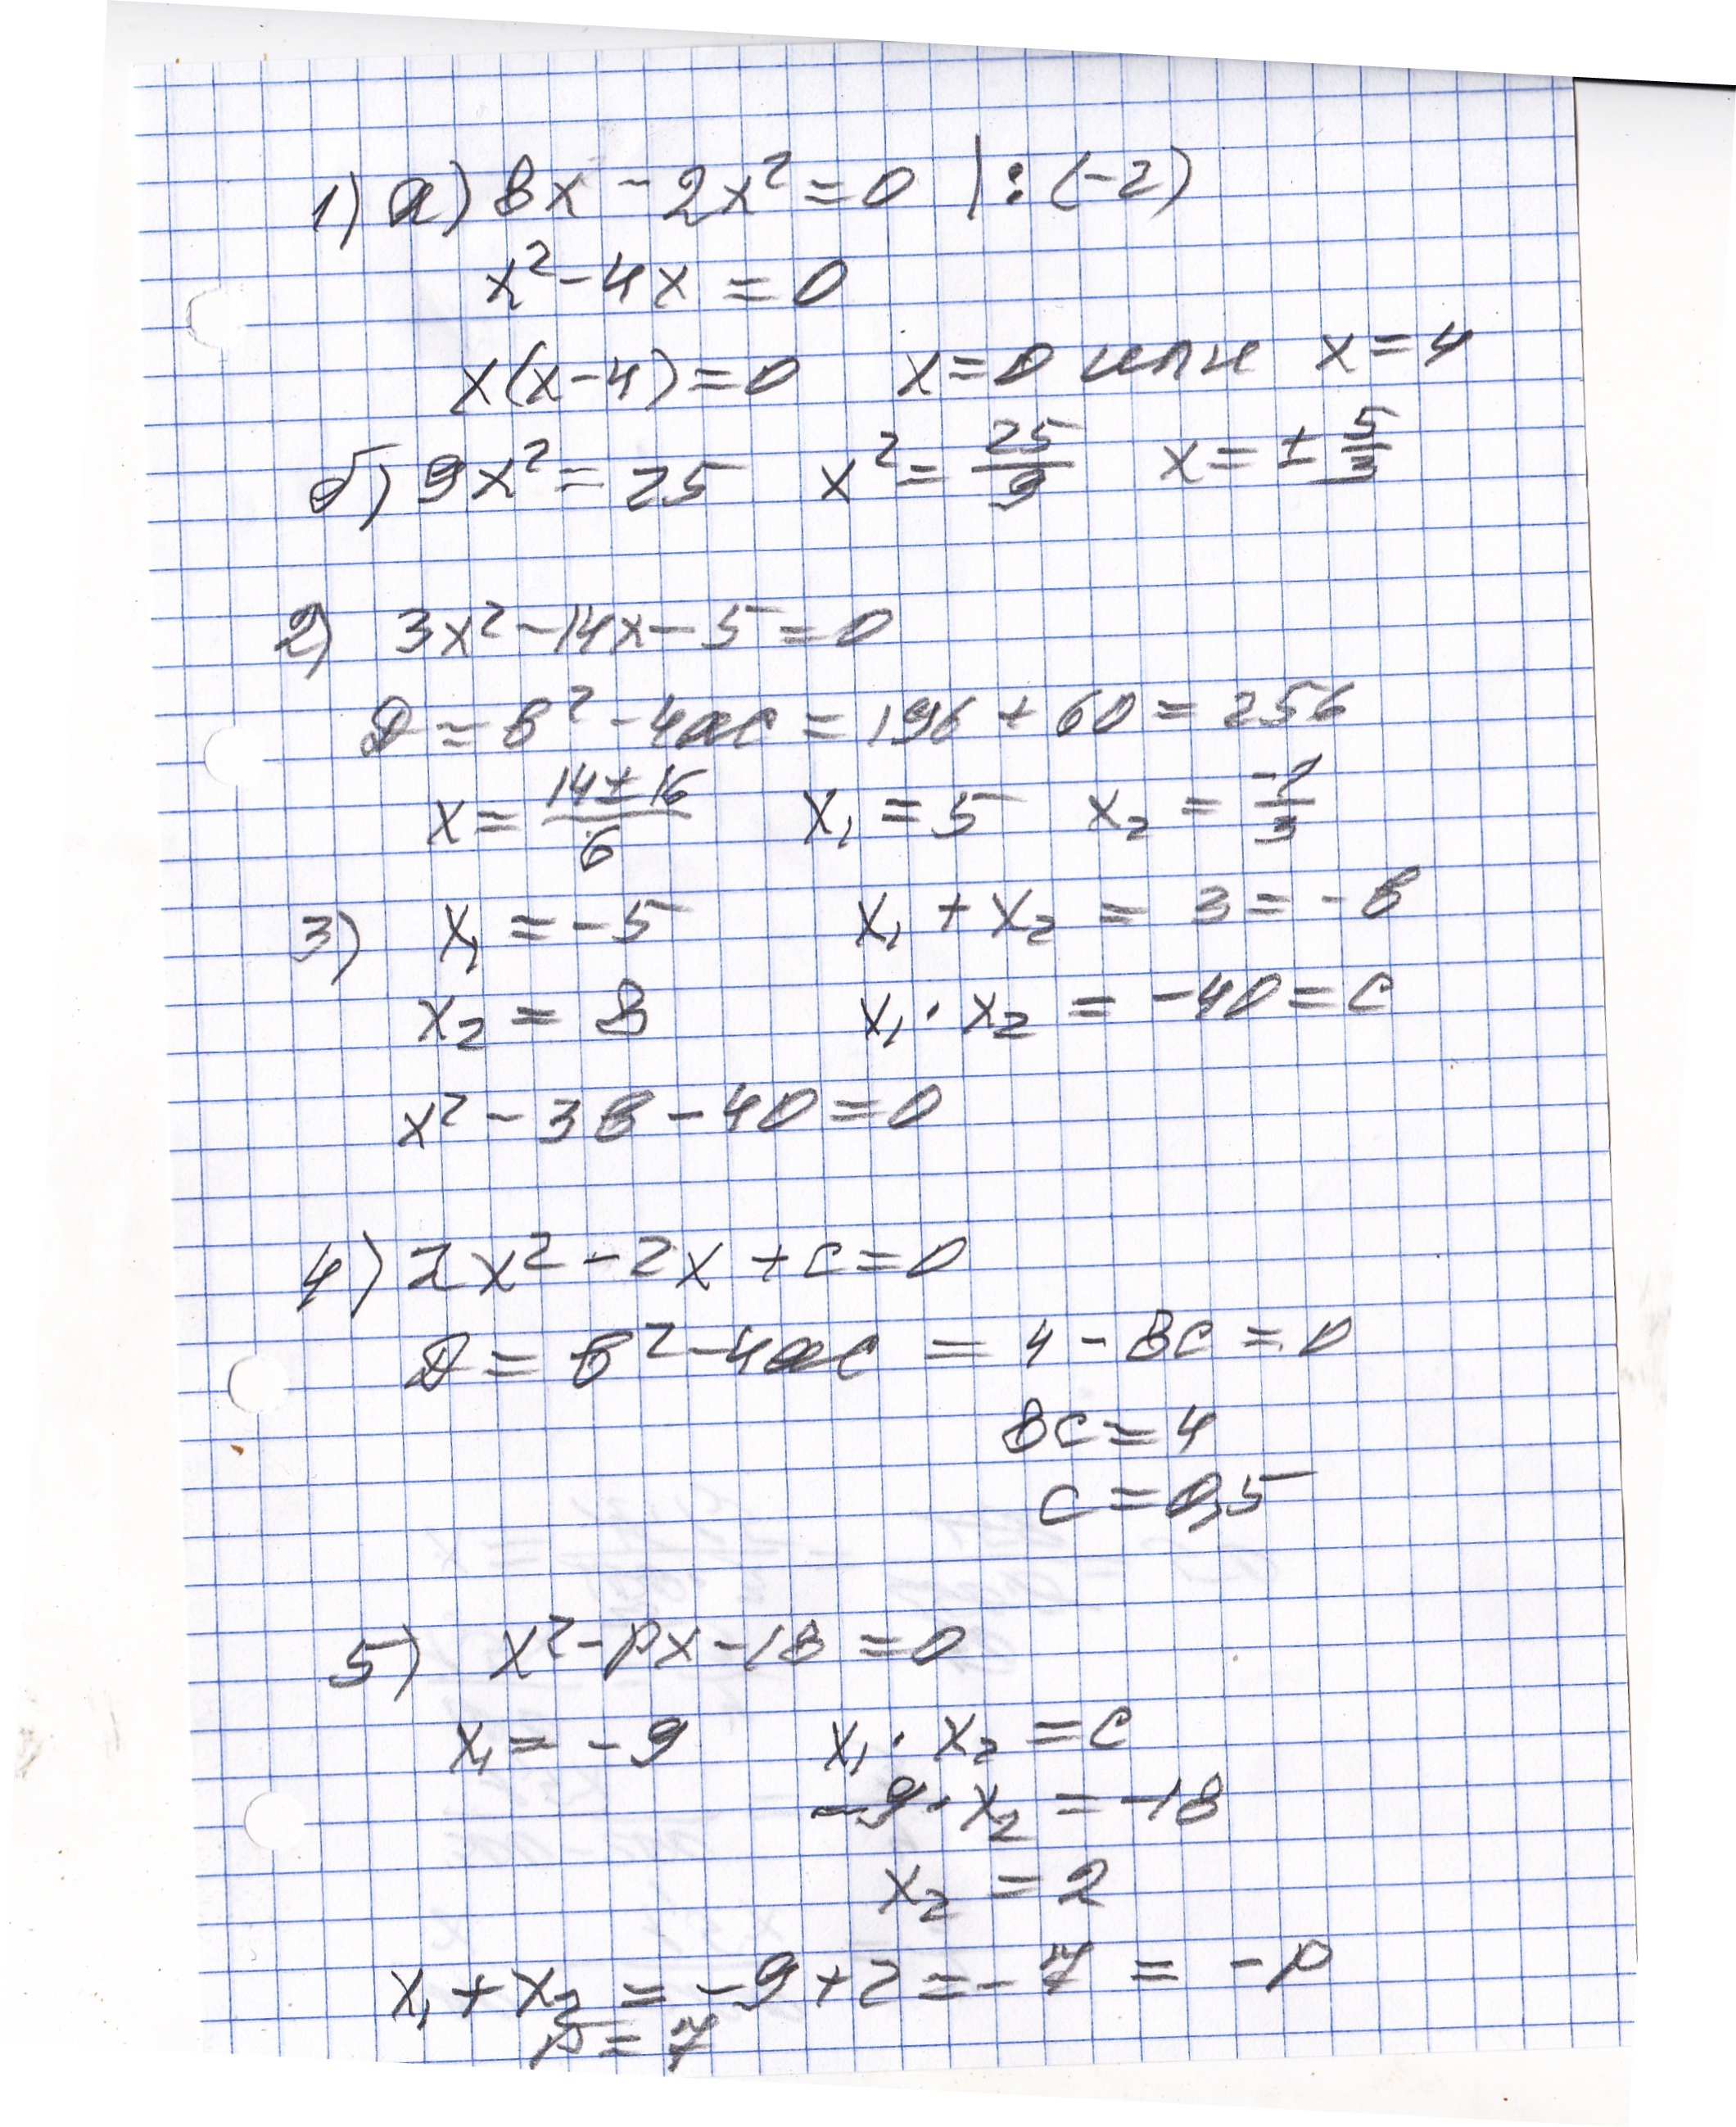 1) а) 8x - 2x² = 0 |:(-2)
x² - 4x = 0
x(x-4) = 0 x = 0 или x = 4
б) 9x² = 25 x² = 25/9 x = ± 5/3
2) 3x² - 14x - 5 = 0
D = b² - 4ac = 196 + 60 = 256
x = (14 ± 16)/6 x₁ = 5 x₂ = -1/3
3) x₁ = -5 x₁ + x₂ = 3 = -b
x₂ = 8 x₁ · x₂ = -40 = c
x² - 3b - 40 = 0
4) 2x² - 2x + c = 0
D = b² - 4ac = 4 - 8c = 0
8c = 4
c = 0,5
5) x² - px - 18 = 0
x₁ = -9 x₁ · x₂ = c
-9 · x₂ = -18
x₂ = 2
x₁ + x₂ = -9 + 2 = -7 = -p
p = 7